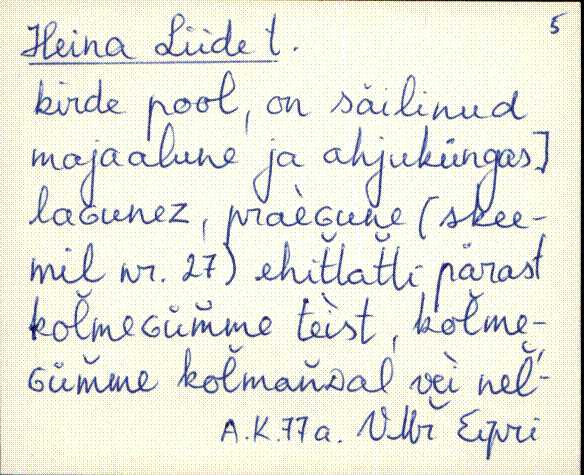 5
Heina Liide t.
kirde pool, on säilinud
majaalune ja ahjuküngas]
laɢunez, praèɢune (skee-
mil nr. 27) ehit̆lat̆ti pärast
kol̆meɢüm̆me tèist, kol̆me-
ɢüm̆me kol̆man̆ᴅal vèi nel̆'-
A.K.77a. VMr̆ Eipri